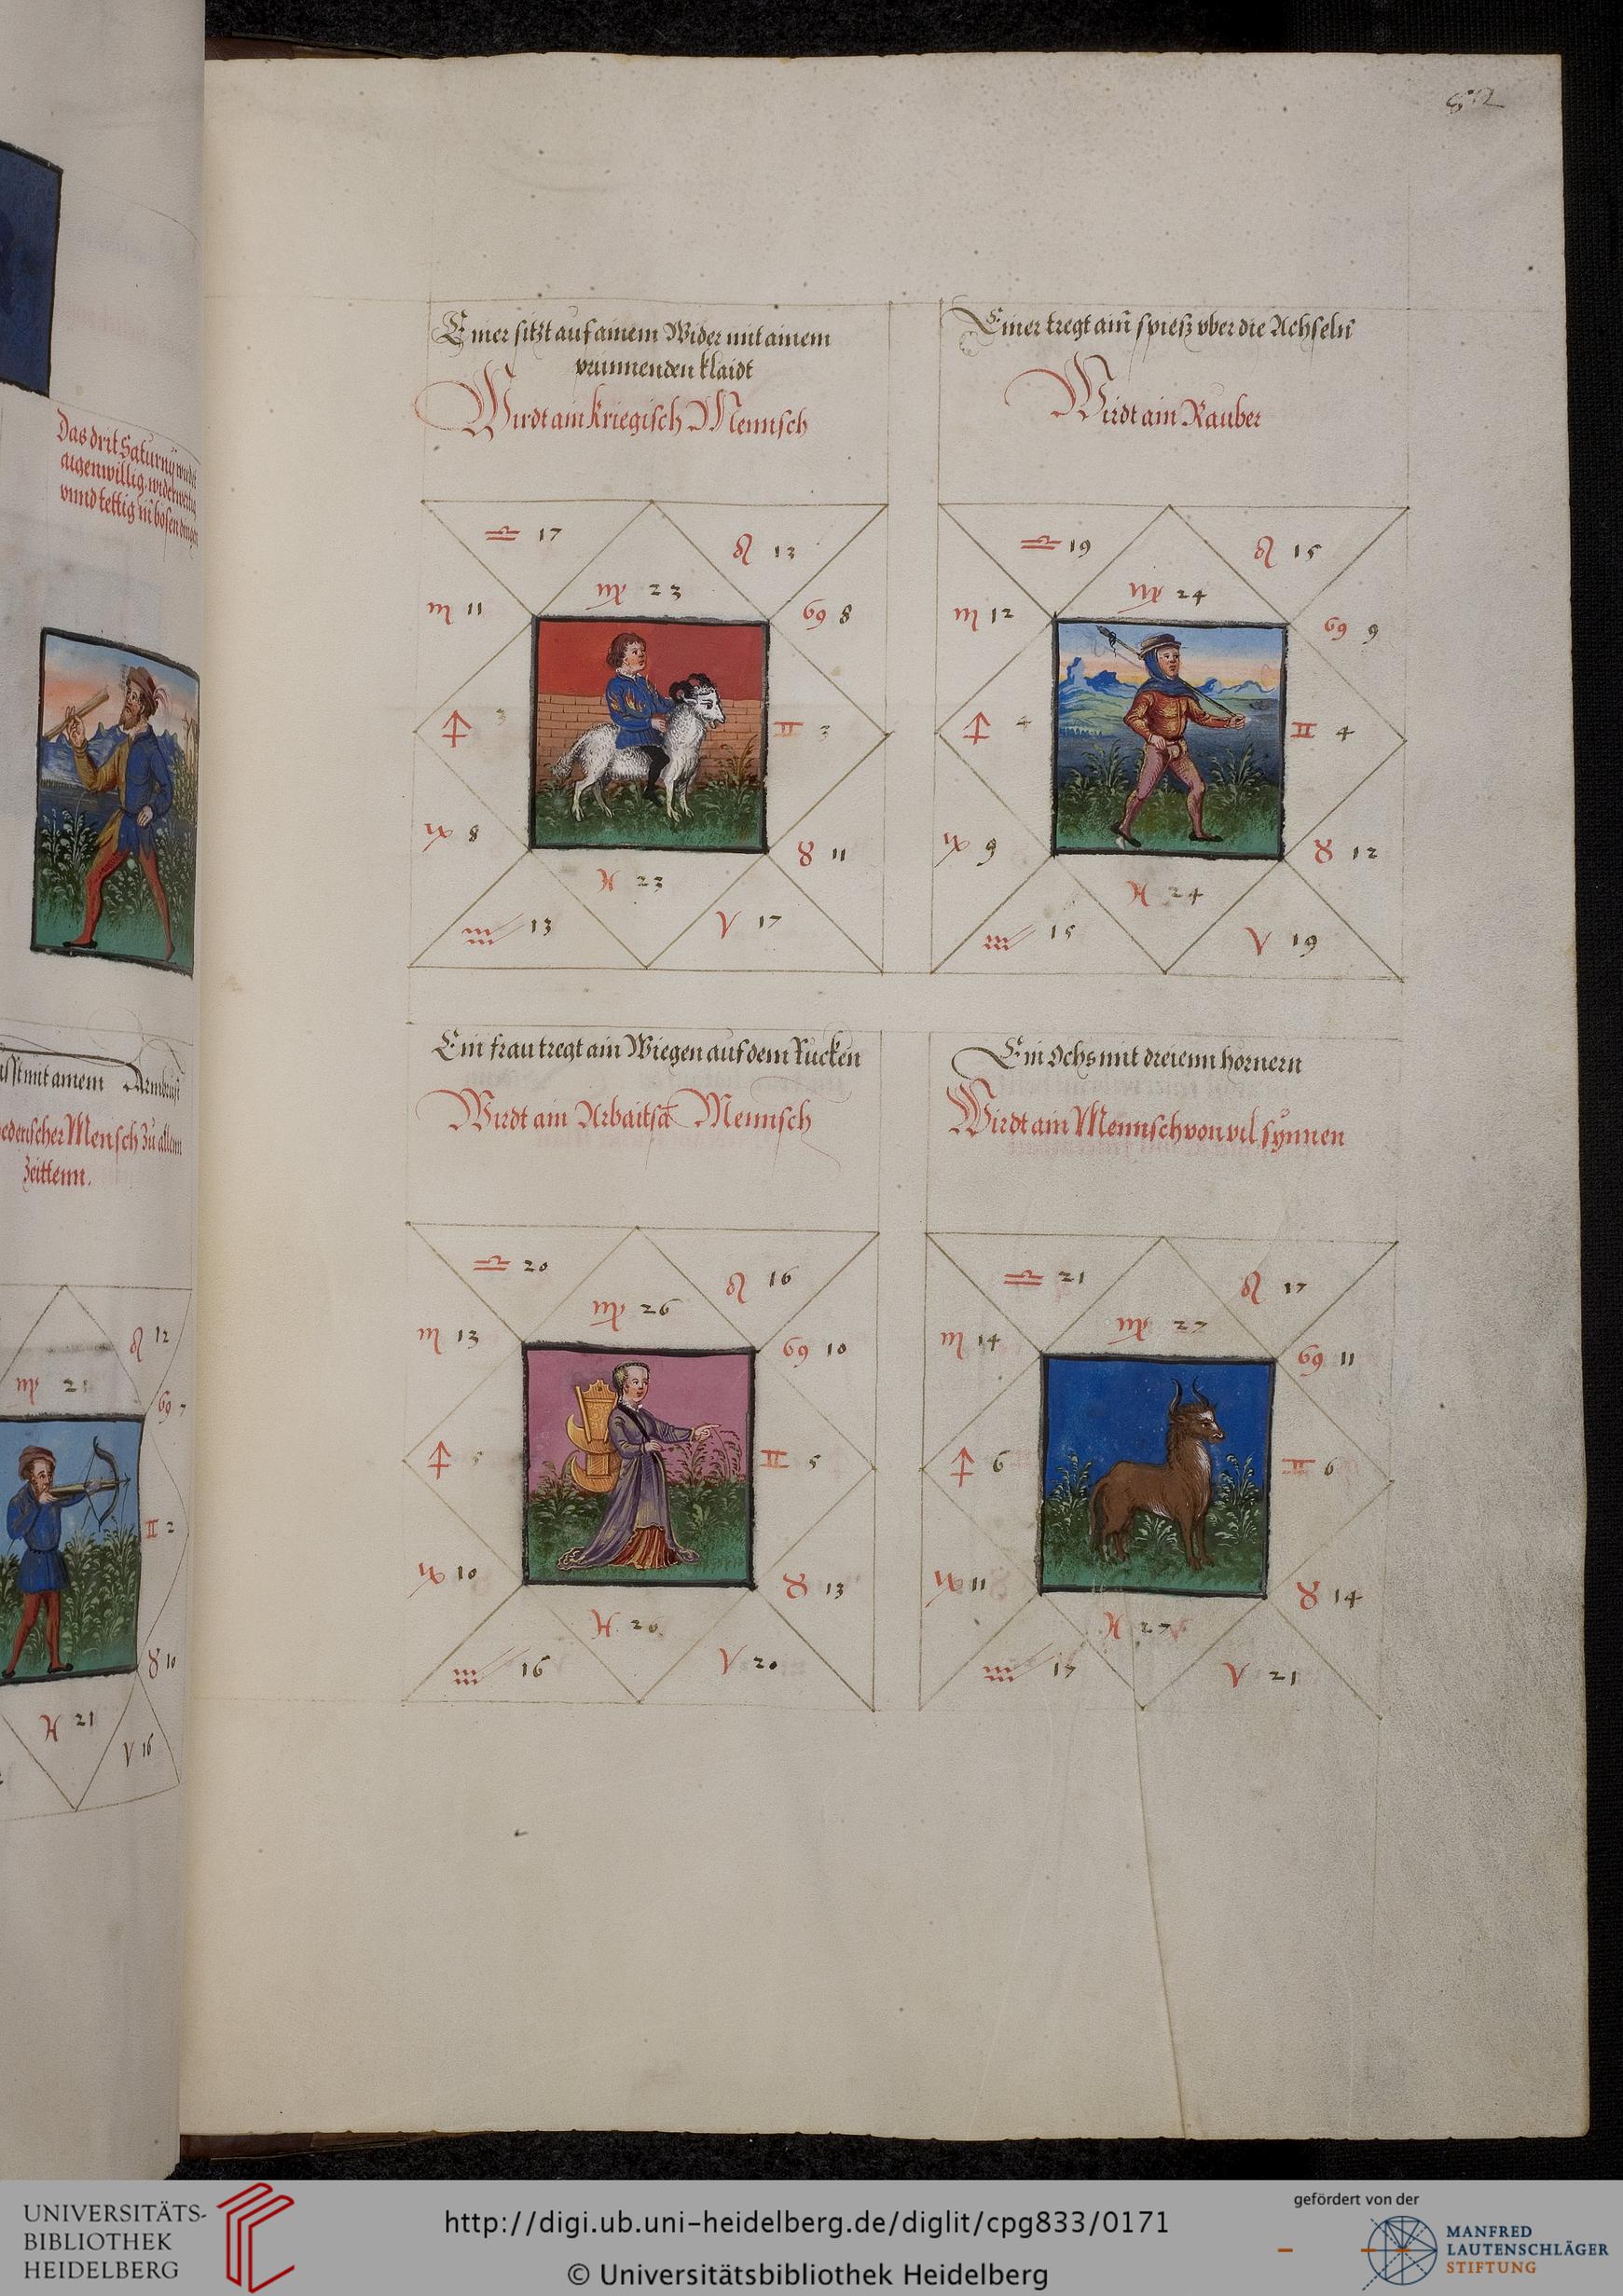 Das drit Saturnÿ wirdt
aigenwillig widerwertig
vnnd tettig in bosen dingen
mit ainem Armbrust
Mensch zu allenn
Zeittenn.
♌ 12
♍ 21
♋ 7
♊ 2
♉ 10
♓ 21
♈ 16
82
Einer sitzt auf ainem Wider mit ainem
prinnenden klaidt
Wirdt ain kriegisch Mennsch
♎ 17
♌ 13
♍ 23
♏ 11
♋ 8
♐ 3
♊ 3
♑ 8
♉ 11
♓ 23
♒ 13
♈ 17
Einer tregt ain spieß vber die Achseln
Wirdt ain Rauber
♎ 19
♌ 15
♍ 24
♏ 12
♋ 9
♐ 4
♊ 4
♑ 9
♉ 12
♓ 24
♒ 15
♈ 19
Ein frau tregt ain Wiegen auf dem Rucken
Wirdt ain Arbaitsā Mennsch
♎ 20
♌ 16
♍ 26
♏ 13
♋ 10
♐ 5
♊ 5
♑ 10
♉ 13
♓ 26
♒ 16
♈ 20
Ein Ochs mit dreienn hornern
Wirdt ain Mennsch von vil synnen
♎ 21
♌ 17
♍ 27
♏ 14
♋ 11
♐ 6
♊ 6
♑ 11
♉ 14
♓ 27
♒ 17
♈ 21
UNIVERSITÄTS-
BIBLIOTHEK
HEIDELBERG
http://digi.ub.uni-heidelberg.de/diglit/cpg833/0171
© Universitätsbibliothek Heidelberg
gefördert von der
MANFRED
LAUTENSCHLÄGER
STIFTUNG